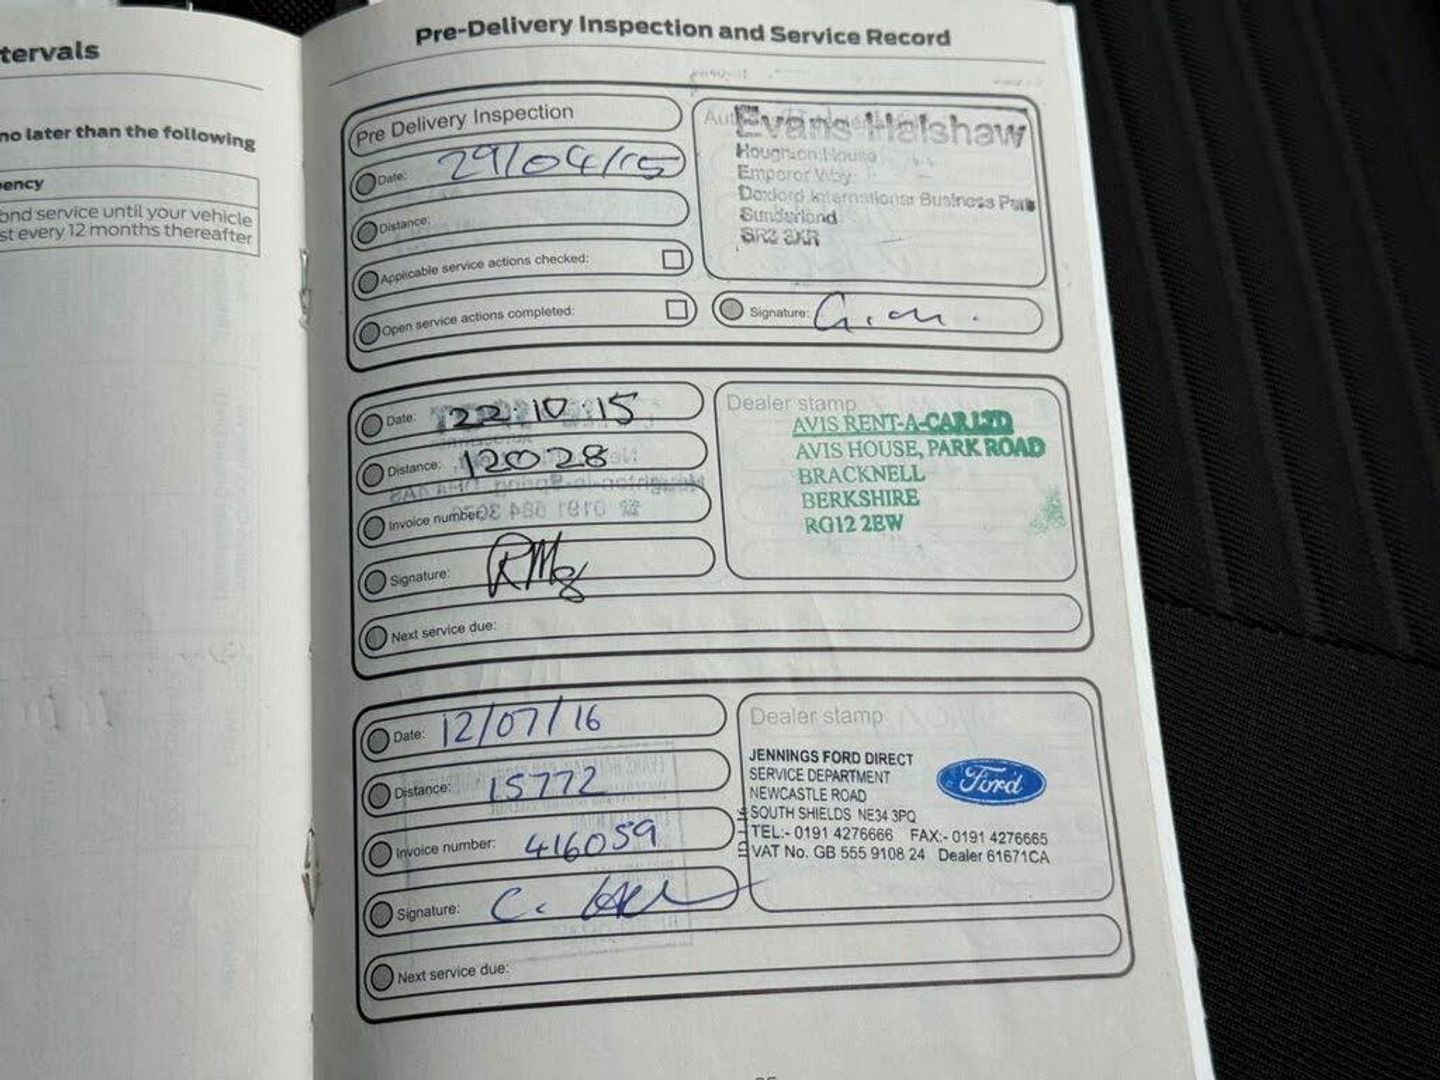 tervals
no later than the following
ency
ond service until your vehicle
st every 12 months thereafter
Pre-Delivery Inspection and Service Record
Pre Delivery Inspection
Date: 29/04/15
Distance:
Applicable service actions checked:
Open service actions completed:
Evans Halshaw
Houghton House
Emperor Way
Doxford International Business Park
Sunderland
SR3 3XR
Signature:
Date: 22.10.15
Distance: 12028
Invoice number:
Signature:
Next service due:
Dealer stamp
AVIS RENT-A-CAR LTD
AVIS HOUSE, PARK ROAD
BRACKNELL
BERKSHIRE
RG12 2EW
Date: 12/07/16
Distance: 15772
Invoice number: 416059
Signature: C.
Next service due:
Dealer stamp
JENNINGS FORD DIRECT
SERVICE DEPARTMENT
NEWCASTLE ROAD
SOUTH SHIELDS NE34 3PQ
TEL:- 0191 4276666 FAX:- 0191 4276665
VAT No. GB 555 9108 24 Dealer 61671CA
Ford